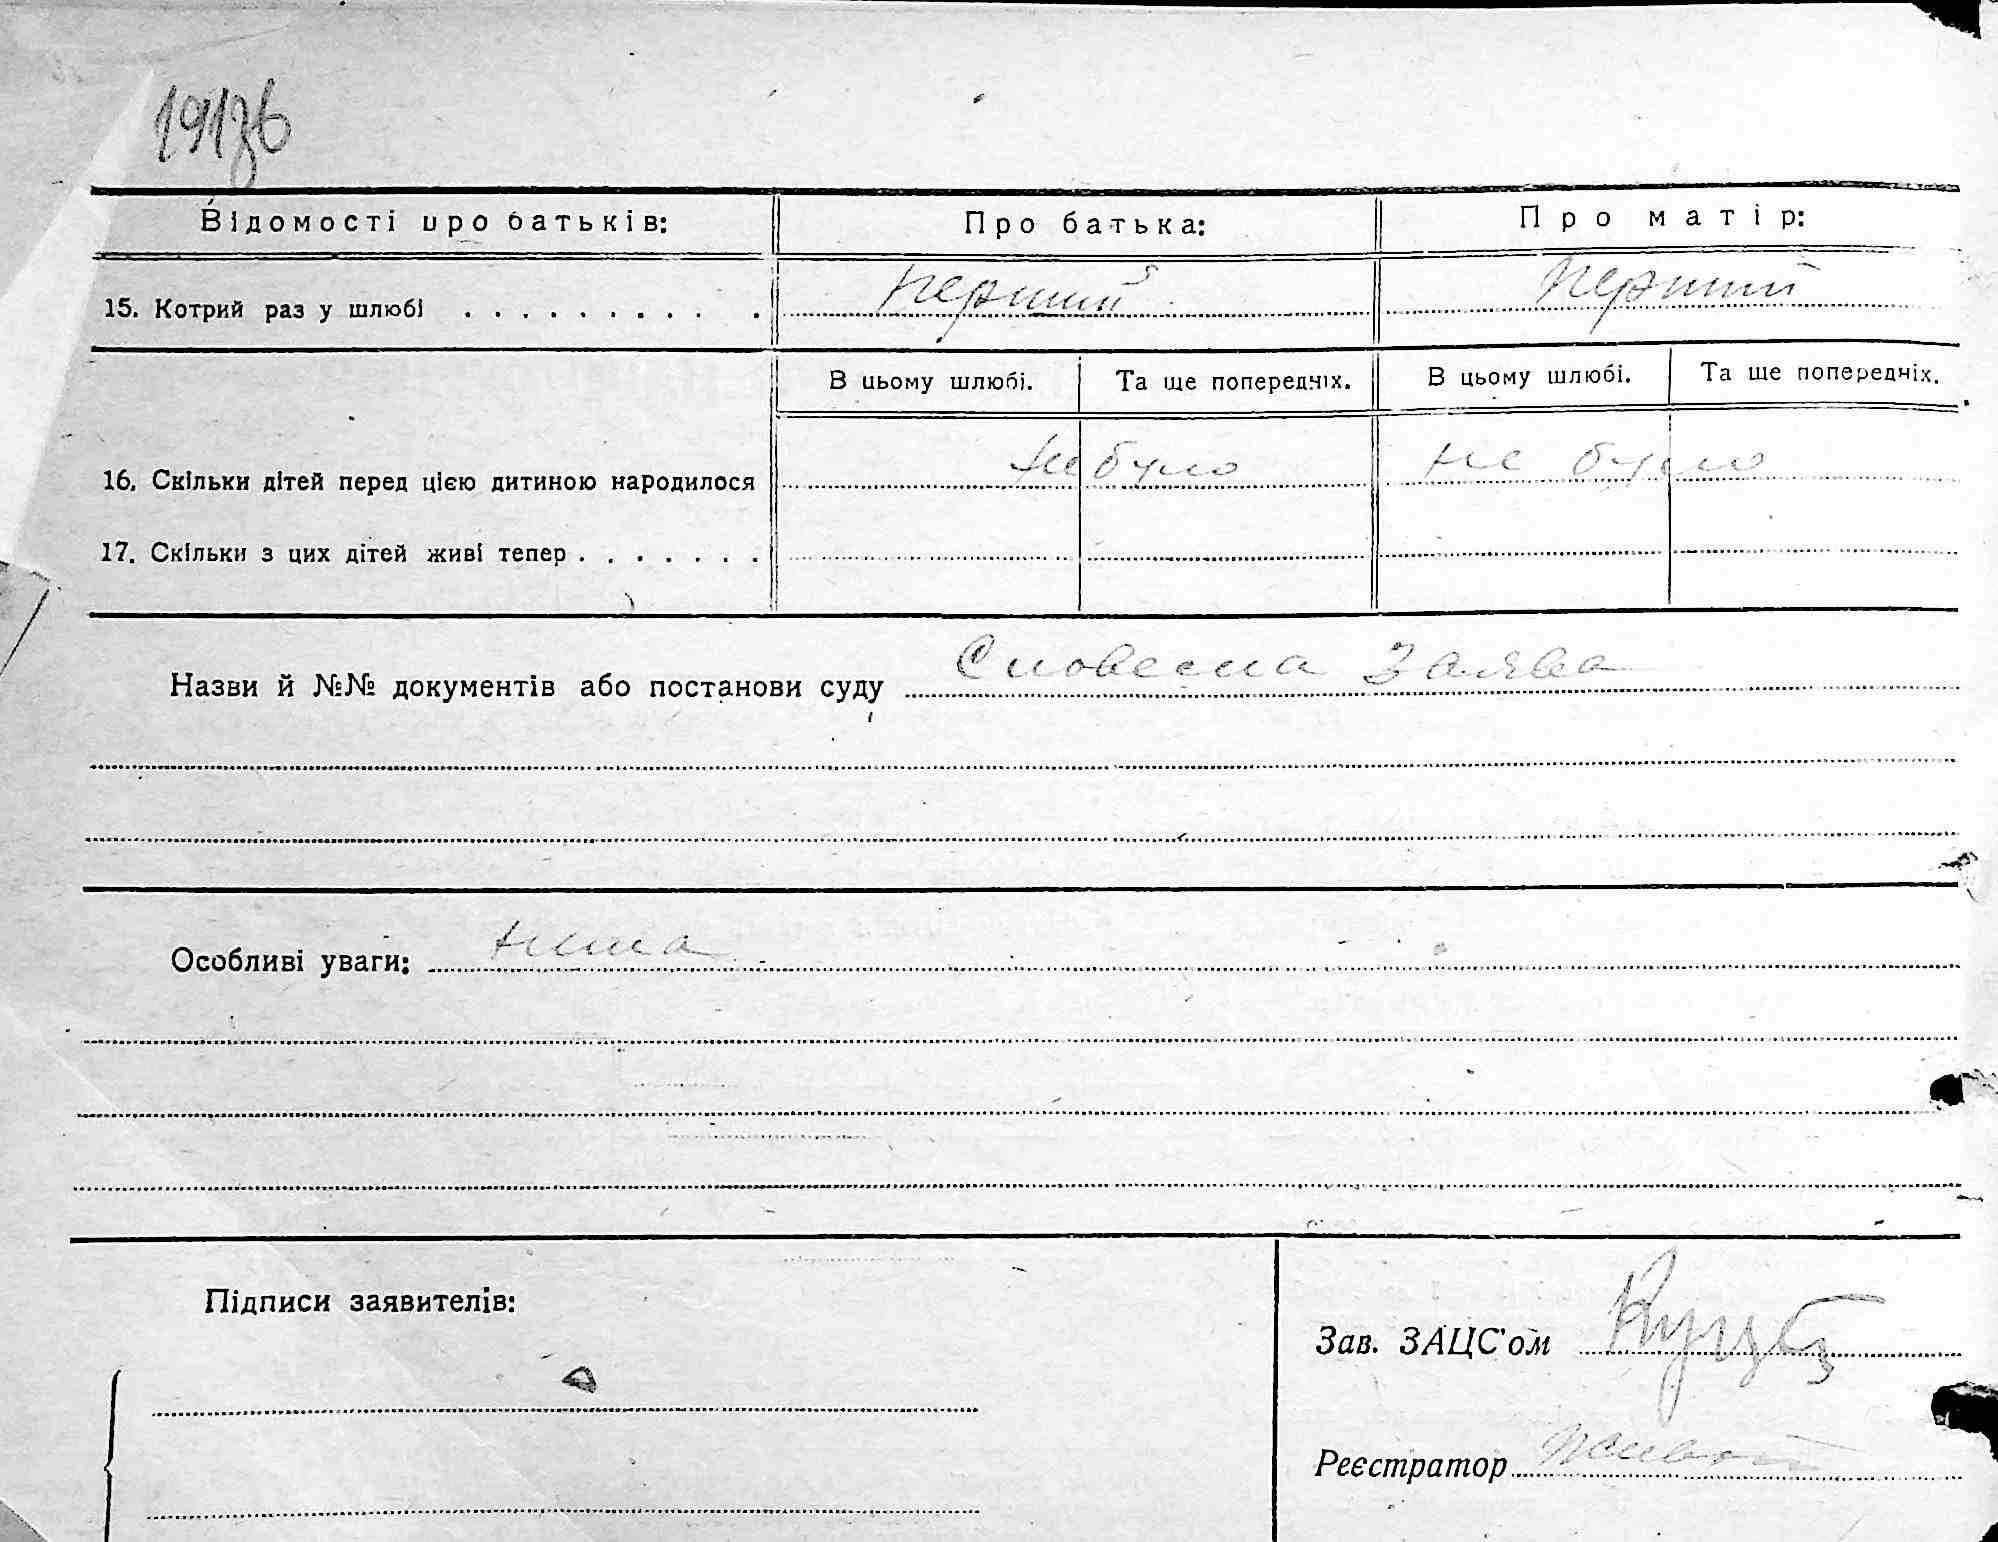 Відомості про батьків: Про батька: Про матір:
15. Котрий раз у шлюбі . . . . . . . . . . перший перший
В цьому шлюбі. Та ще попередніх. В цьому шлюбі. Та ще попередніх.
16. Скільки дітей перед цією дитиною народилося не було не було
17. Скільки з цих дітей живі тепер . . . . . . .
Назви й №№ документів або постанови суду Словесна заява
Особливі уваги: нема
Підписи заявителів:
Зав. ЗАЦС'ом
Реєстратор